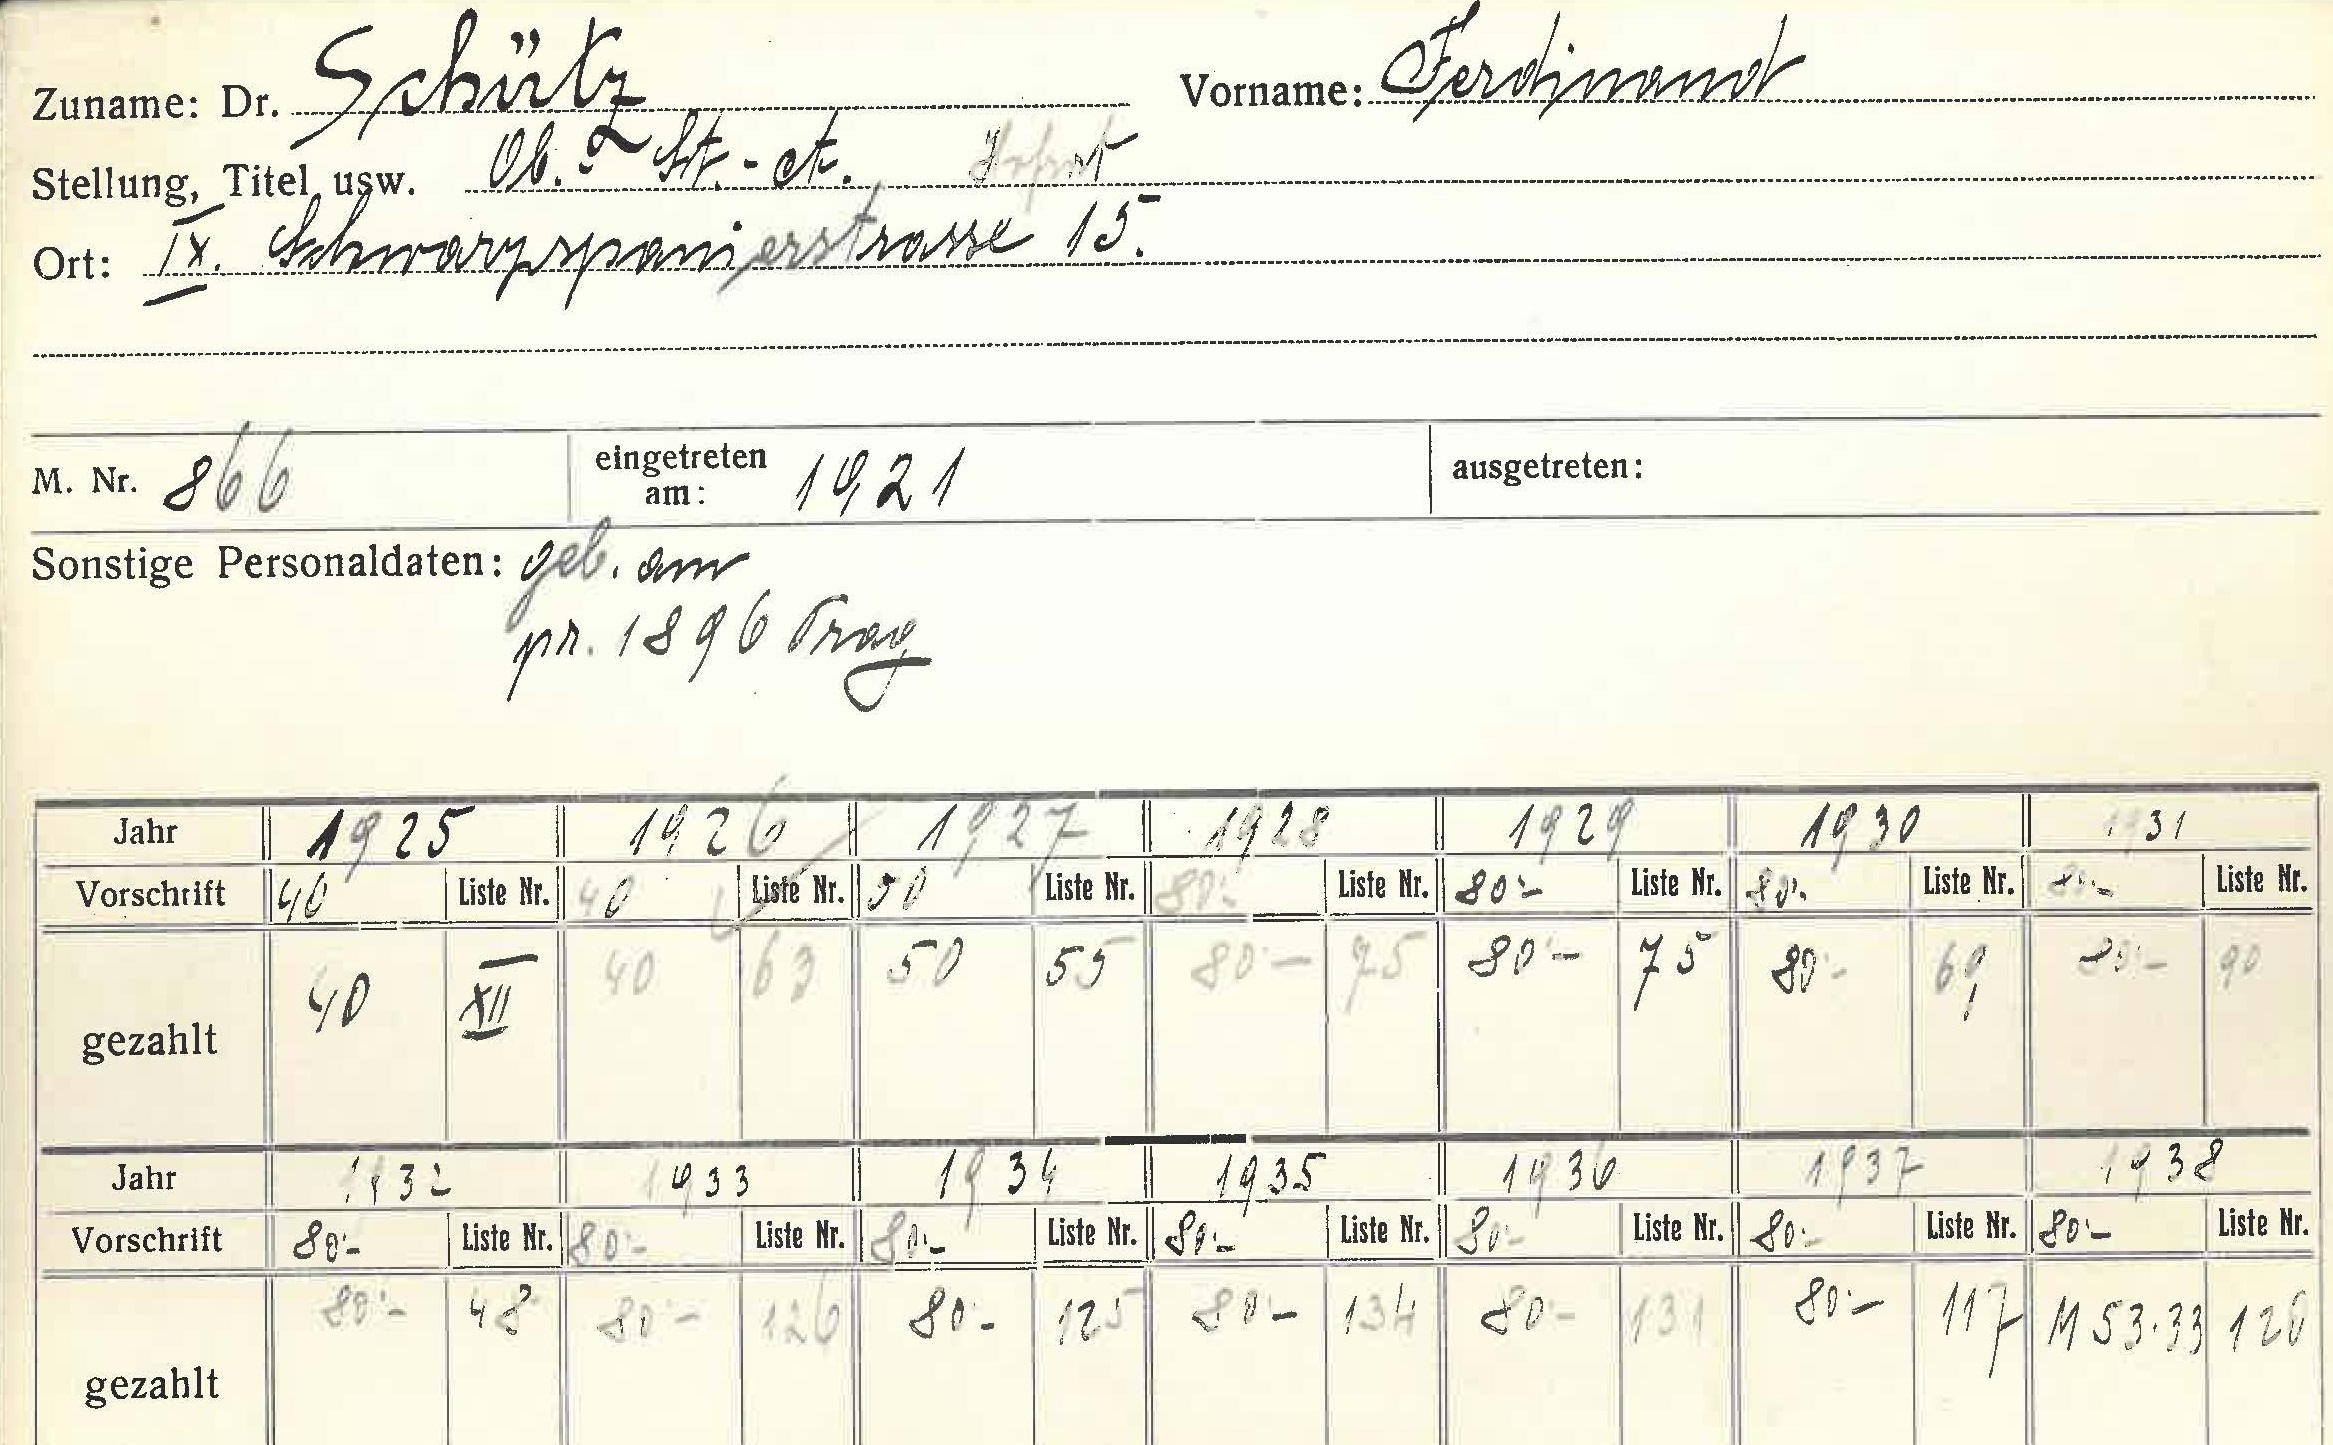 Zuname: Dr. Schütz Vorname: Ferdinand
Stellung, Titel usw. Ob. St.-A.
Ort: IX. Schwarzspanierstrasse 15.
M. Nr. 866 eingetreten am: 1921 ausgetreten:
Sonstige Personaldaten: geb. am
pr. 1896 Prag
Jahr 1925 1926 1927 1928 1929 1930 1931
Vorschrift 40 Liste Nr. 40 Liste Nr. 50 Liste Nr. 80.- Liste Nr. 80.- Liste Nr. 80.- Liste Nr. 80.- Liste Nr.
gezahlt 40 XII 40 63 50 55 80.- 75 80.- 75 80.- 69 80.- 90
Jahr 1932 1933 1934 1935 1936 1937 1938
Vorschrift 80.- Liste Nr. 80.- Liste Nr. 80.- Liste Nr. 80.- Liste Nr. 80.- Liste Nr. 80.- Liste Nr. 80.- Liste Nr.
gezahlt 80.- 48 80.- 126 80.- 125 80.- 134 80.- 131 80.- 117 M 53.33 120